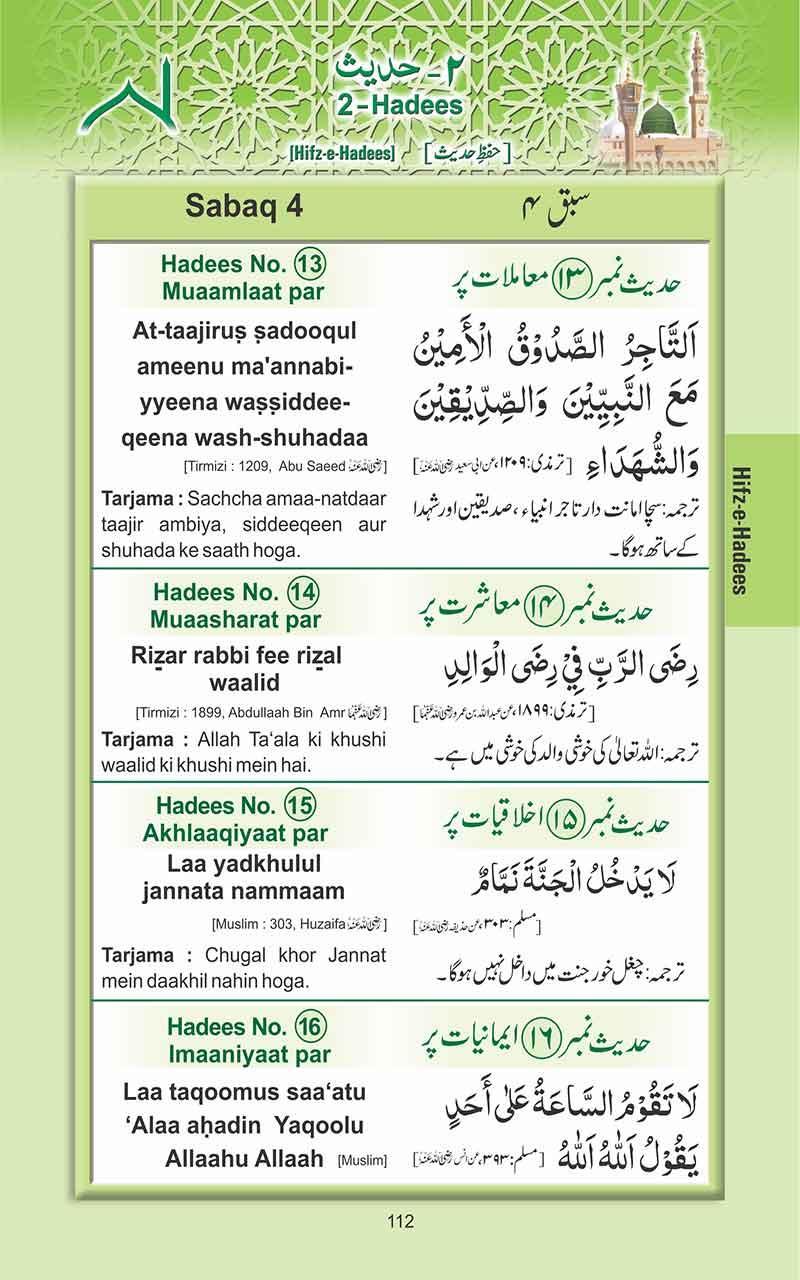 ٢ - حدیث
2-Hadees
[Hifz-e-Hadees] [حفظِ حدیث]
Sabaq 4
سبق ۴
Hadees No. 13
Muaamlaat par
حدیث نمبر ۱۳ معاملات پر
At-taajiruṣ ṣadooqul
ameenu ma'annabi-
yyeena waṣṣiddee-
qeena wash-shuhadaa
[Tirmizi : 1209, Abu Saeed رضی اللہ عنہ]
اَلتَّاجِرُ الصَّدُوْقُ الْأَمِيْنُ
مَعَ النَّبِيِّيْنَ وَالصِّدِّيْقِيْنَ
وَالشُّهَدَاءِ [ترمذی: ۱۲۰۹، عن ابی سعید رضی اللہ عنہ]
Tarjama : Sachcha amaa-natdaar
taajir ambiya, siddeeqeen aur
shuhada ke saath hoga.
ترجمہ: سچا امانت دار تاجر انبیاء، صدیقین اور شہدا
کے ساتھ ہوگا۔
Hadees No. 14
Muaasharat par
حدیث نمبر ۱۴ معاشرت پر
Riẕar rabbi fee riẕal
waalid
[Tirmizi : 1899, Abdullaah Bin Amr رضی اللہ عنہما]
رِضَى الرَّبِّ فِيْ رِضَى الْوَالِدِ
[ترمذی: ۱۸۹۹، عن عبداللہ بن عمرو رضی اللہ عنہما]
Tarjama : Allah Ta‘ala ki khushi
waalid ki khushi mein hai.
ترجمہ: اللہ تعالیٰ کی خوشی والد کی خوشی میں ہے۔
Hadees No. 15
Akhlaaqiyaat par
حدیث نمبر ۱۵ اخلاقیات پر
Laa yadkhulul
jannata nammaam
[Muslim : 303, Huzaifa رضی اللہ عنہ]
لَا يَدْخُلُ الْجَنَّةَ نَمَّامٌ
[مسلم: ۳۰۳، عن حذیفہ رضی اللہ عنہ]
Tarjama : Chugal khor Jannat
mein daakhil nahin hoga.
ترجمہ: چغل خور جنت میں داخل نہیں ہوگا۔
Hadees No. 16
Imaaniyaat par
حدیث نمبر ۱۶ ایمانیات پر
Laa taqoomus saa‘atu
‘Alaa aḥadin Yaqoolu
Allaahu Allaah [Muslim]
لَا تَقُوْمُ السَّاعَةُ عَلٰى أَحَدٍ
يَقُوْلُ اَللهُ اَللهُ [مسلم: ۳۹۳، عن انس رضی اللہ عنہ]
Hifz-e-Hadees
112